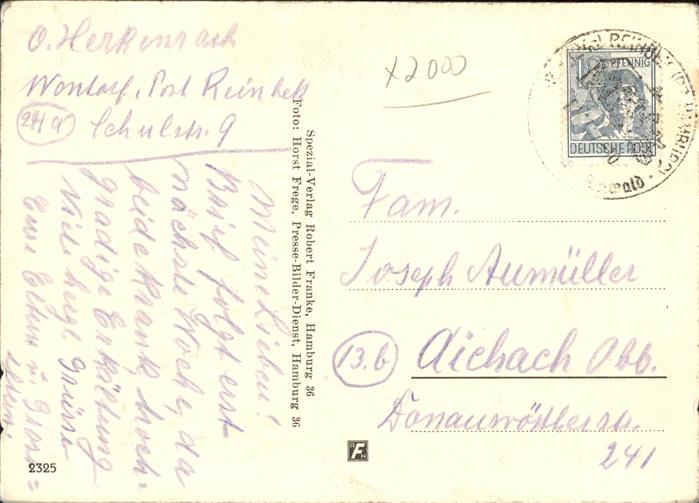 O. Herkenrach
Wentorf, Post Reinbek
24a Schulstr. 9
x2000
12 PFENNIG
DEUTSCHE POST
REINBEK (BZ. HAMBURG)
Meine Lieben!
Brief folgt erst
nächste Woche, da
beide krank, hoch-
gradige Erkältung
Viele herzl. Grüsse
Eure Eltern u. Gross=
eltern.
Spezial-Verlag Robert Franke, Hamburg 36
Foto: Horst Frege, Presse-Bilder-Dienst, Hamburg 36
Fam.
Joseph Aumüller
13.b Aichach Obb.
Donauwörtherstr.
241
2325
F